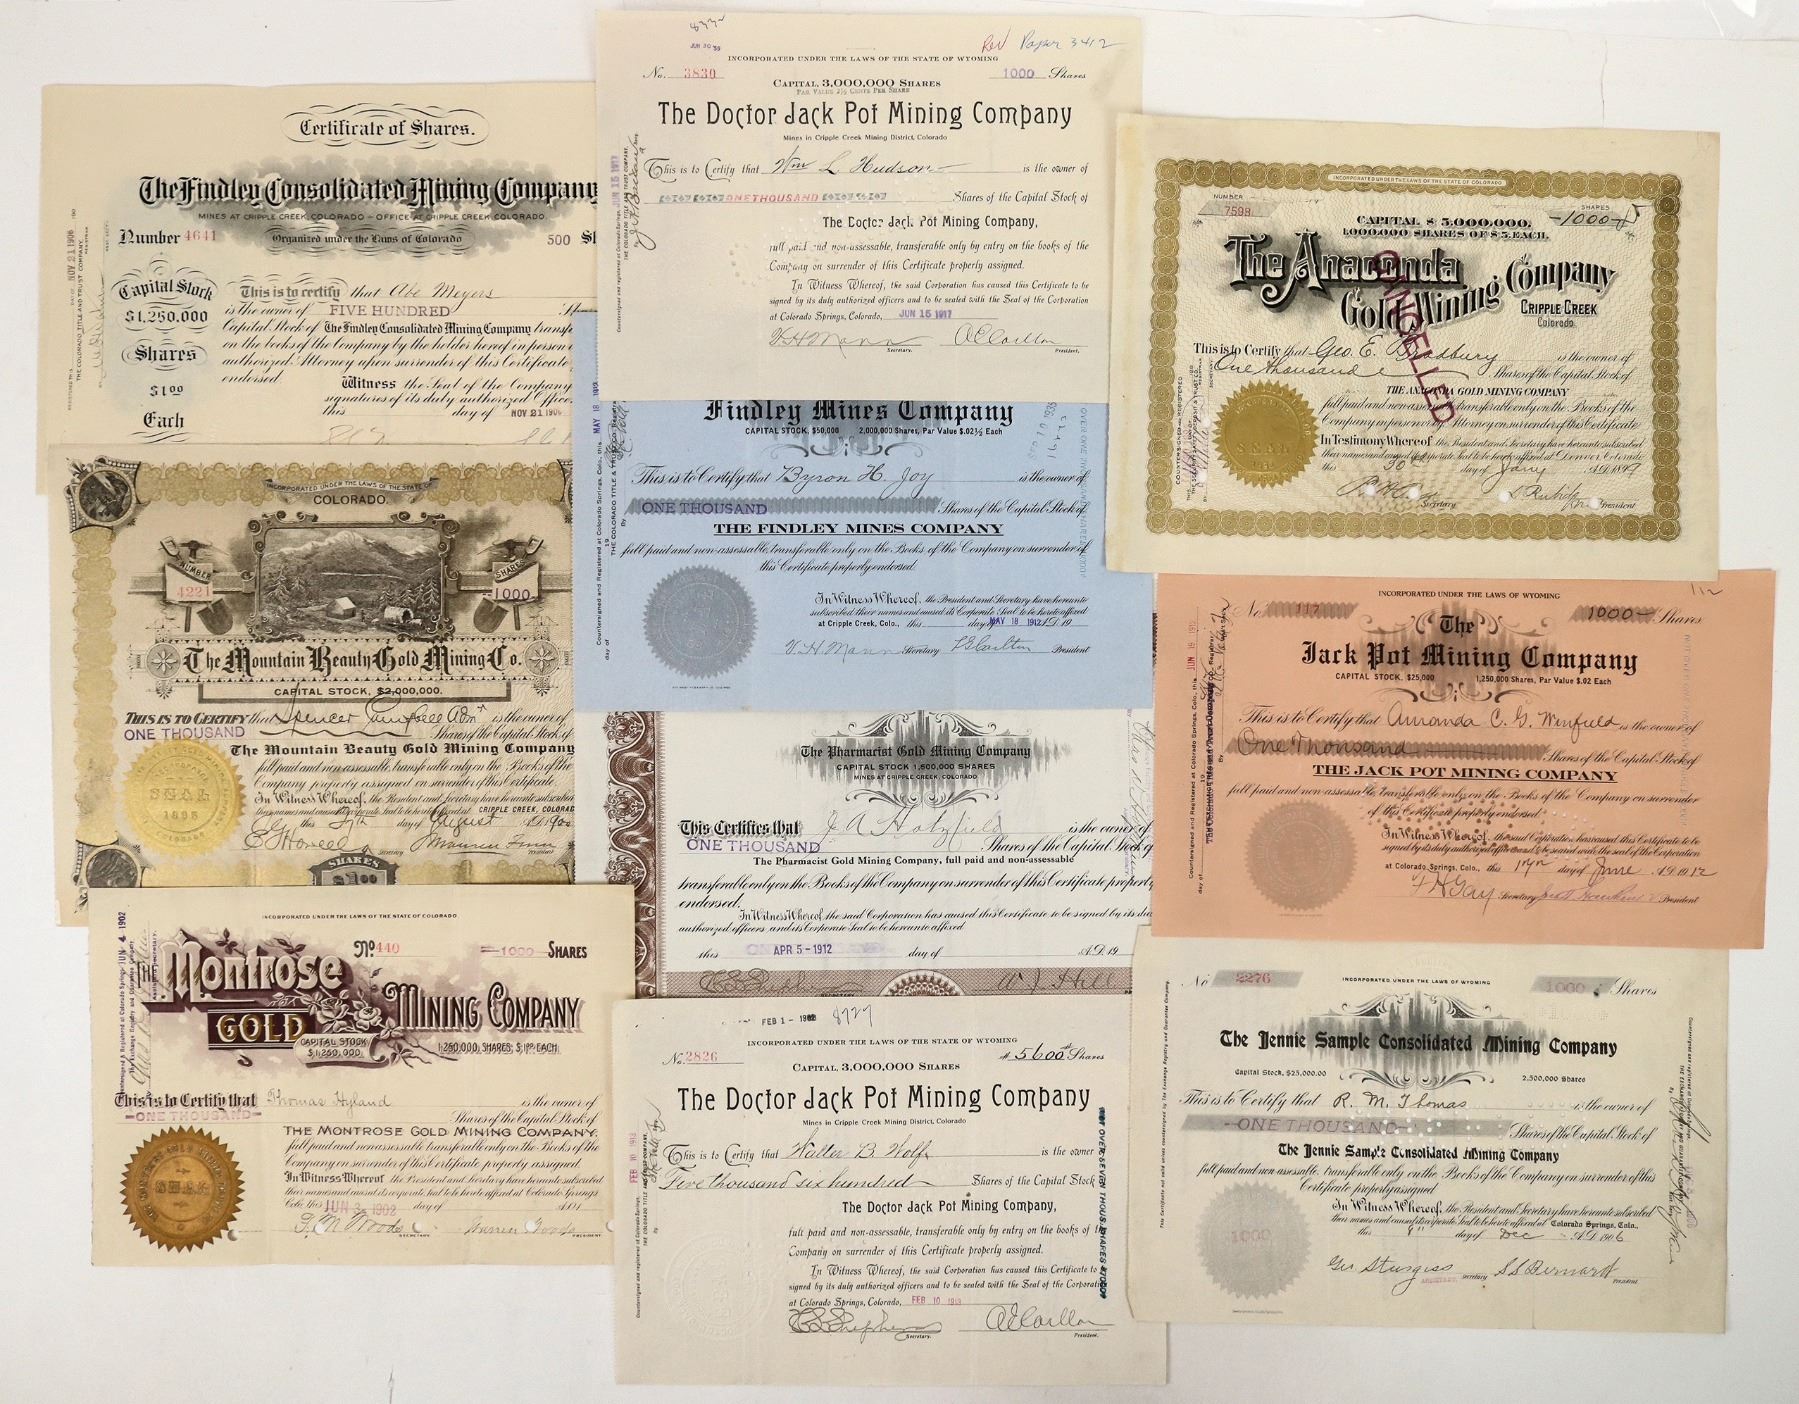 Certificate of Shares.
The Findley Consolidated Mining Company
MINES AT CRIPPLE CREEK, COLORADO – OFFICE AT CRIPPLE CREEK COLORADO.
Number 4641
Organized under the Laws of Colorado
500
NOV 21 1906
Capital Stock
$1,250.000
Shares
$1.00
Each
This is to certify that Abe Meyers
is the owner of FIVE HUNDRED
Capital Stock of The Findley Consolidated Mining Company
on the books of the Company by the holder hereof in person
authorized Attorney upon surrender of this Certificate
endorsed.
Witness the Seal of the Company
signatures of its duly authorized
this day of NOV 21 1906
INCORPORATED UNDER THE LAWS OF THE STATE OF
COLORADO.
NUMBER
4221
SHARES
1000
The Mountain Beauty Gold Mining Co.
CAPITAL STOCK, $2,000,000.
THIS IS TO CERTIFY that Spencer Campbell Adm is the owner of
ONE THOUSAND Shares of the Capital Stock of
THE MOUNTAIN BEAUTY GOLD MINING COMPANY
full paid and non-assessable, transferable only on the Books of the
Company properly assigned on surrender of this Certificate.
In Witness Whereof, the President and Secretary have hereunto subscribed
their names and caused its corporate Seal to be hereto affixed at CRIPPLE CREEK, COLORADO
this 27th day of August A.D. 1900
SEAL
1895
SHARES
$1.00
INCORPORATED UNDER THE LAWS OF THE STATE OF COLORADO.
JUN 4 1902
No. 440
1000 SHARES
THE Montrose
GOLD
MINING COMPANY
CAPITAL STOCK
$1,250,000.
1,250,000, SHARES, $1.00 EACH.
This is to Certify that Thomas Hyland is the owner of
ONE THOUSAND Shares of the Capital Stock of
THE MONTROSE GOLD MINING COMPANY,
full paid and nonassessable transferable only on the Books of the
Company on surrender of this Certificate properly assigned.
In Witness Whereof the President and Secretary have hereunto subscribed
their names and caused its corporate Seal to be hereto affixed at Colorado Springs
Colo. this JUN 3 1902 day of A.D. 1
SEAL
SECRETARY
PRESIDENT
8332
JUN 30 33
Rev Paper 3412
INCORPORATED UNDER THE LAWS OF THE STATE OF WYOMING
No. 3830
1000 Shares
CAPITAL, 3,000,000 SHARES
PAR VALUE 2½ CENTS PER SHARE
The Doctor Jack Pot Mining Company
Mines in Cripple Creek Mining District, Colorado
This is to Certify that Wm L Hudson is the owner of
ONE THOUSAND Shares of the Capital Stock of
The Doctor Jack Pot Mining Company,
full paid and non-assessable, transferable only by entry on the books of the
Company on surrender of this Certificate properly assigned.
In Witness Whereof, the said Corporation has caused this Certificate to be
signed by its duly authorized officers and to be sealed with the Seal of the Corporation
at Colorado Springs, Colorado, JUN 15 1917
V. H. Mann Secretary.
A E Carlton President.
JUN 15 1917
Findley Mines Company
CAPITAL STOCK, $50,000 2,000,000 Shares, Par Value $.02½ Each
MAY 18 1912
This is to Certify that Byron H. Joy is the owner of
ONE THOUSAND Shares of the Capital Stock of
THE FINDLEY MINES COMPANY
full paid and non-assessable, transferable only on the Books of the Company on surrender of
this Certificate properly endorsed.
In Witness Whereof, the President and Secretary have hereunto
subscribed their names and caused its Corporate Seal to be hereto affixed
at Cripple Creek, Colo., this day of MAY 18 1912 A.D. 19
V. H. Mann Secretary
President
The Pharmacist Gold Mining Company
CAPITAL STOCK 1,500,000 SHARES
MINES AT CRIPPLE CREEK, COLORADO
This Certifies that J A Holyfield is the owner of
ONE THOUSAND Shares of the Capital Stock of
The Pharmacist Gold Mining Company, full paid and non-assessable
transferable only on the Books of the Company on surrender of this Certificate properly
endorsed.
In Witness Whereof, the said Corporation has caused this Certificate to be signed by its duly
authorized officers, and its Corporate Seal to be hereto affixed
this APR 5 - 1912 day of A.D. 19
W J Hill
FEB 1 - 1908 8727
INCORPORATED UNDER THE LAWS OF THE STATE OF WYOMING
No. 2826
#5600 Shares
CAPITAL, 3,000,000 SHARES
The Doctor Jack Pot Mining Company
Mines in Cripple Creek Mining District, Colorado
This is to Certify that Walter B. Wolf is the owner
Five thousand six hundred Shares of the Capital Stock
The Doctor Jack Pot Mining Company,
full paid and non-assessable, transferable only by entry on the books of the
Company on surrender of this Certificate properly assigned.
In Witness Whereof, the said Corporation has caused this Certificate to
signed by its duly authorized officers and to be sealed with the Seal of the Corporation
at Colorado Springs, Colorado, FEB 10 1913
A E Carlton
Secretary.
President.
FEB 10 1913
INCORPORATED UNDER THE LAWS OF THE STATE OF COLORADO
NUMBER
7598
SHARES
1000
CAPITAL $ 5,000,000.
1,000,000 SHARES OF $5. EACH.
The Anaconda
Gold Mining Company
CRIPPLE CREEK
Colorado.
CANCELLED
This is to Certify that Geo. E. Bradbury is the owner of
One thousand Shares of the Capital Stock of
THE ANACONDA GOLD MINING COMPANY
full paid and non-assessable, transferable only on the Books of the
Company in person or by Attorney on surrender of this Certificate
In Testimony Whereof the President and Secretary have hereunto subscribed
their names and caused its Corporate Seal to be hereto affixed at Denver, Colorado
this 30th day of Jany A.D. 1899
SEAL
Secretary
President
112
INCORPORATED UNDER THE LAWS OF WYOMING
No. 117
1000 Shares
The
Jack Pot Mining Company
CAPITAL STOCK, $25,000 1,250,000 Shares, Par Value $.02 Each
This is to Certify that Amanda C. G. Winfield is the owner of
One Thousand Shares of the Capital Stock of
THE JACK POT MINING COMPANY
full paid and non-assessable, transferable only on the Books of the Company on surrender
of this Certificate properly endorsed.
In Witness Whereof, the said Corporation has caused this Certificate to be
signed by its duly authorized officers and to be sealed with the seal of the Corporation
at Colorado Springs, Colo., this 17th day of June A.D. 1912
Secretary
President
JUN 19 1912
No 2276
INCORPORATED UNDER THE LAWS OF WYOMING
1000 Shares
The Jennie Sample Consolidated Mining Company
Capital Stock, $25,000.00
2,500,000 Shares
This is to Certify that R. M. Thomas is the owner of
ONE THOUSAND Shares of the Capital Stock of
The Jennie Sample Consolidated Mining Company
full paid and non-assessable, transferable only on the Books of the Company on surrender of this
Certificate properly assigned
In Witness Whereof, the President and Secretary have hereunto subscribed
their names and caused its corporate Seal to be hereto affixed at Colorado Springs, Colo.,
this 8" day of Dec A.D. 1906
1000
Geo Sturgess ASSISTANT Secretary
S S Bernard President